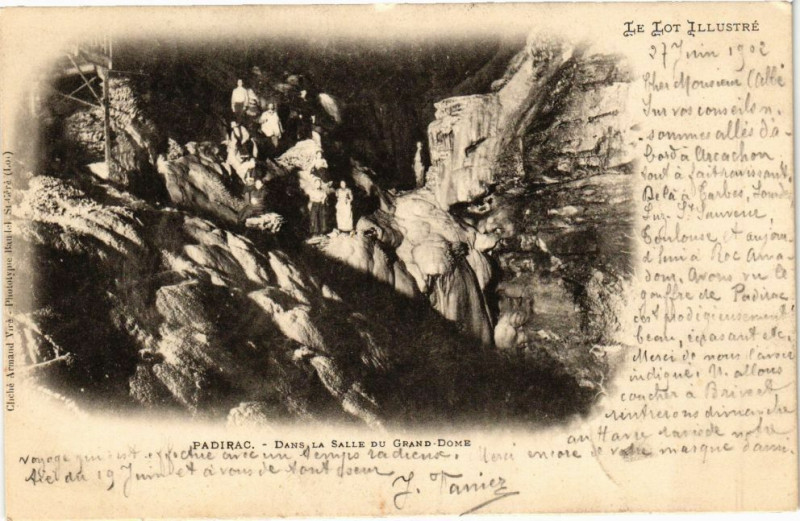 LE LOT ILLUSTRÉ
27 Juin 1902
Cher Monsieur l'Abbé
Sur vos conseils n.
sommes allés d'a-
bord à Arcachon
tout à fait ravissant,
De là à Tarbes, Lourdes
Luz, St Sauveur,
Toulouse et aujour-
d'hui à Roc Ama-
dour. Avons vu le
gouffre de Padirac
c'est prodigieusement
beau, écrasant etc.
Merci de nous l'avoir
indiqué. N. allons
coucher à Brive et
rentrerons dimanche
au Havre ravis de notre
voyage qui s'est effectué avec un temps radieux. Merci encore de votre marque d'ami-
tié du 19 Juin et à vous de tout cœur
PADIRAC. - DANS LA SALLE DU GRAND-DOME
Cliché Armand Viré - Phototypie Baudel St-Céré (Lot)